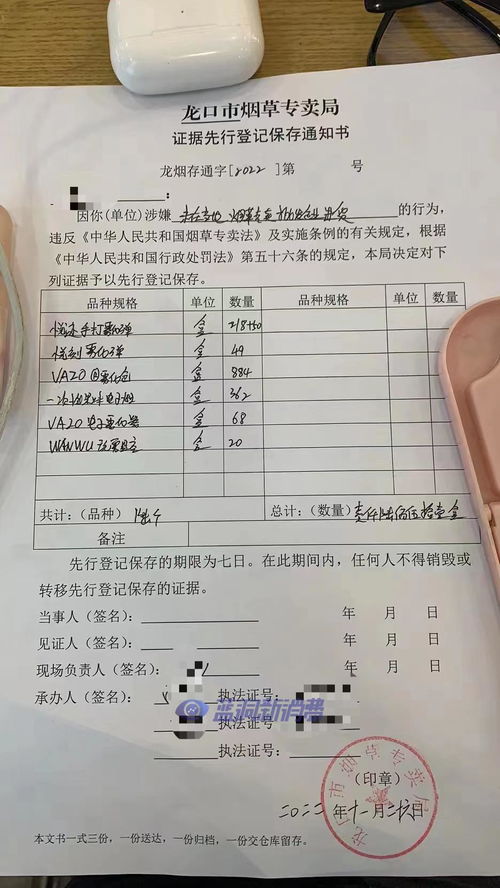 龙口市烟草专卖局
证据先行登记保存通知书
龙烟存通字[2022]第 号
:
因你(单位)涉嫌 的行为,
违反《中华人民共和国烟草专卖法》及实施条例的有关规定,根据
《中华人民共和国行政处罚法》第五十六条的规定,本局决定对下
列证据予以先行登记保存。
品种规格 单位 数量 品种规格 单位 数量
盒 218+50
悦刻雾化弹 盒 49
VAZO 雾化 盒 884
一次性 电子烟 盒 362
VAZO电子雾化器 盒 68
WANWU 盒 20
共计:(品种) 总计:(数量) 壹仟陆佰 盒
备注
先行登记保存的期限为七日。在此期间内,任何人不得销毁或
转移先行登记保存的证据。
当事人(签名): 年 月 日
见证人(签名): 年 月 日
现场负责人(签名): 年 月 日
承办人(签名): 执法证号:
蓝洞新消费
执法证号:
执法证号:
(印章)
二〇二二年十一月二六日
龙口市烟草专卖局
本文书一式三份,一份送达,一份归档,一份交仓库留存。